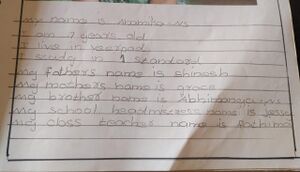 My name is
I am 7 years old
I live in
I study in 1 standard
My fathers name is shinosh
My mothers name is grace
My brother name is Abhimanyu
My school headmistress name is
My class teacher name is fathima